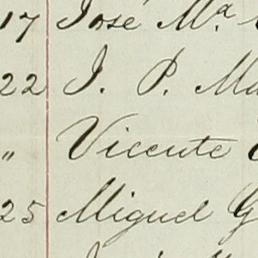 17 José Ma.
22 J. P. Ma
" Vicente
25 Miguel G